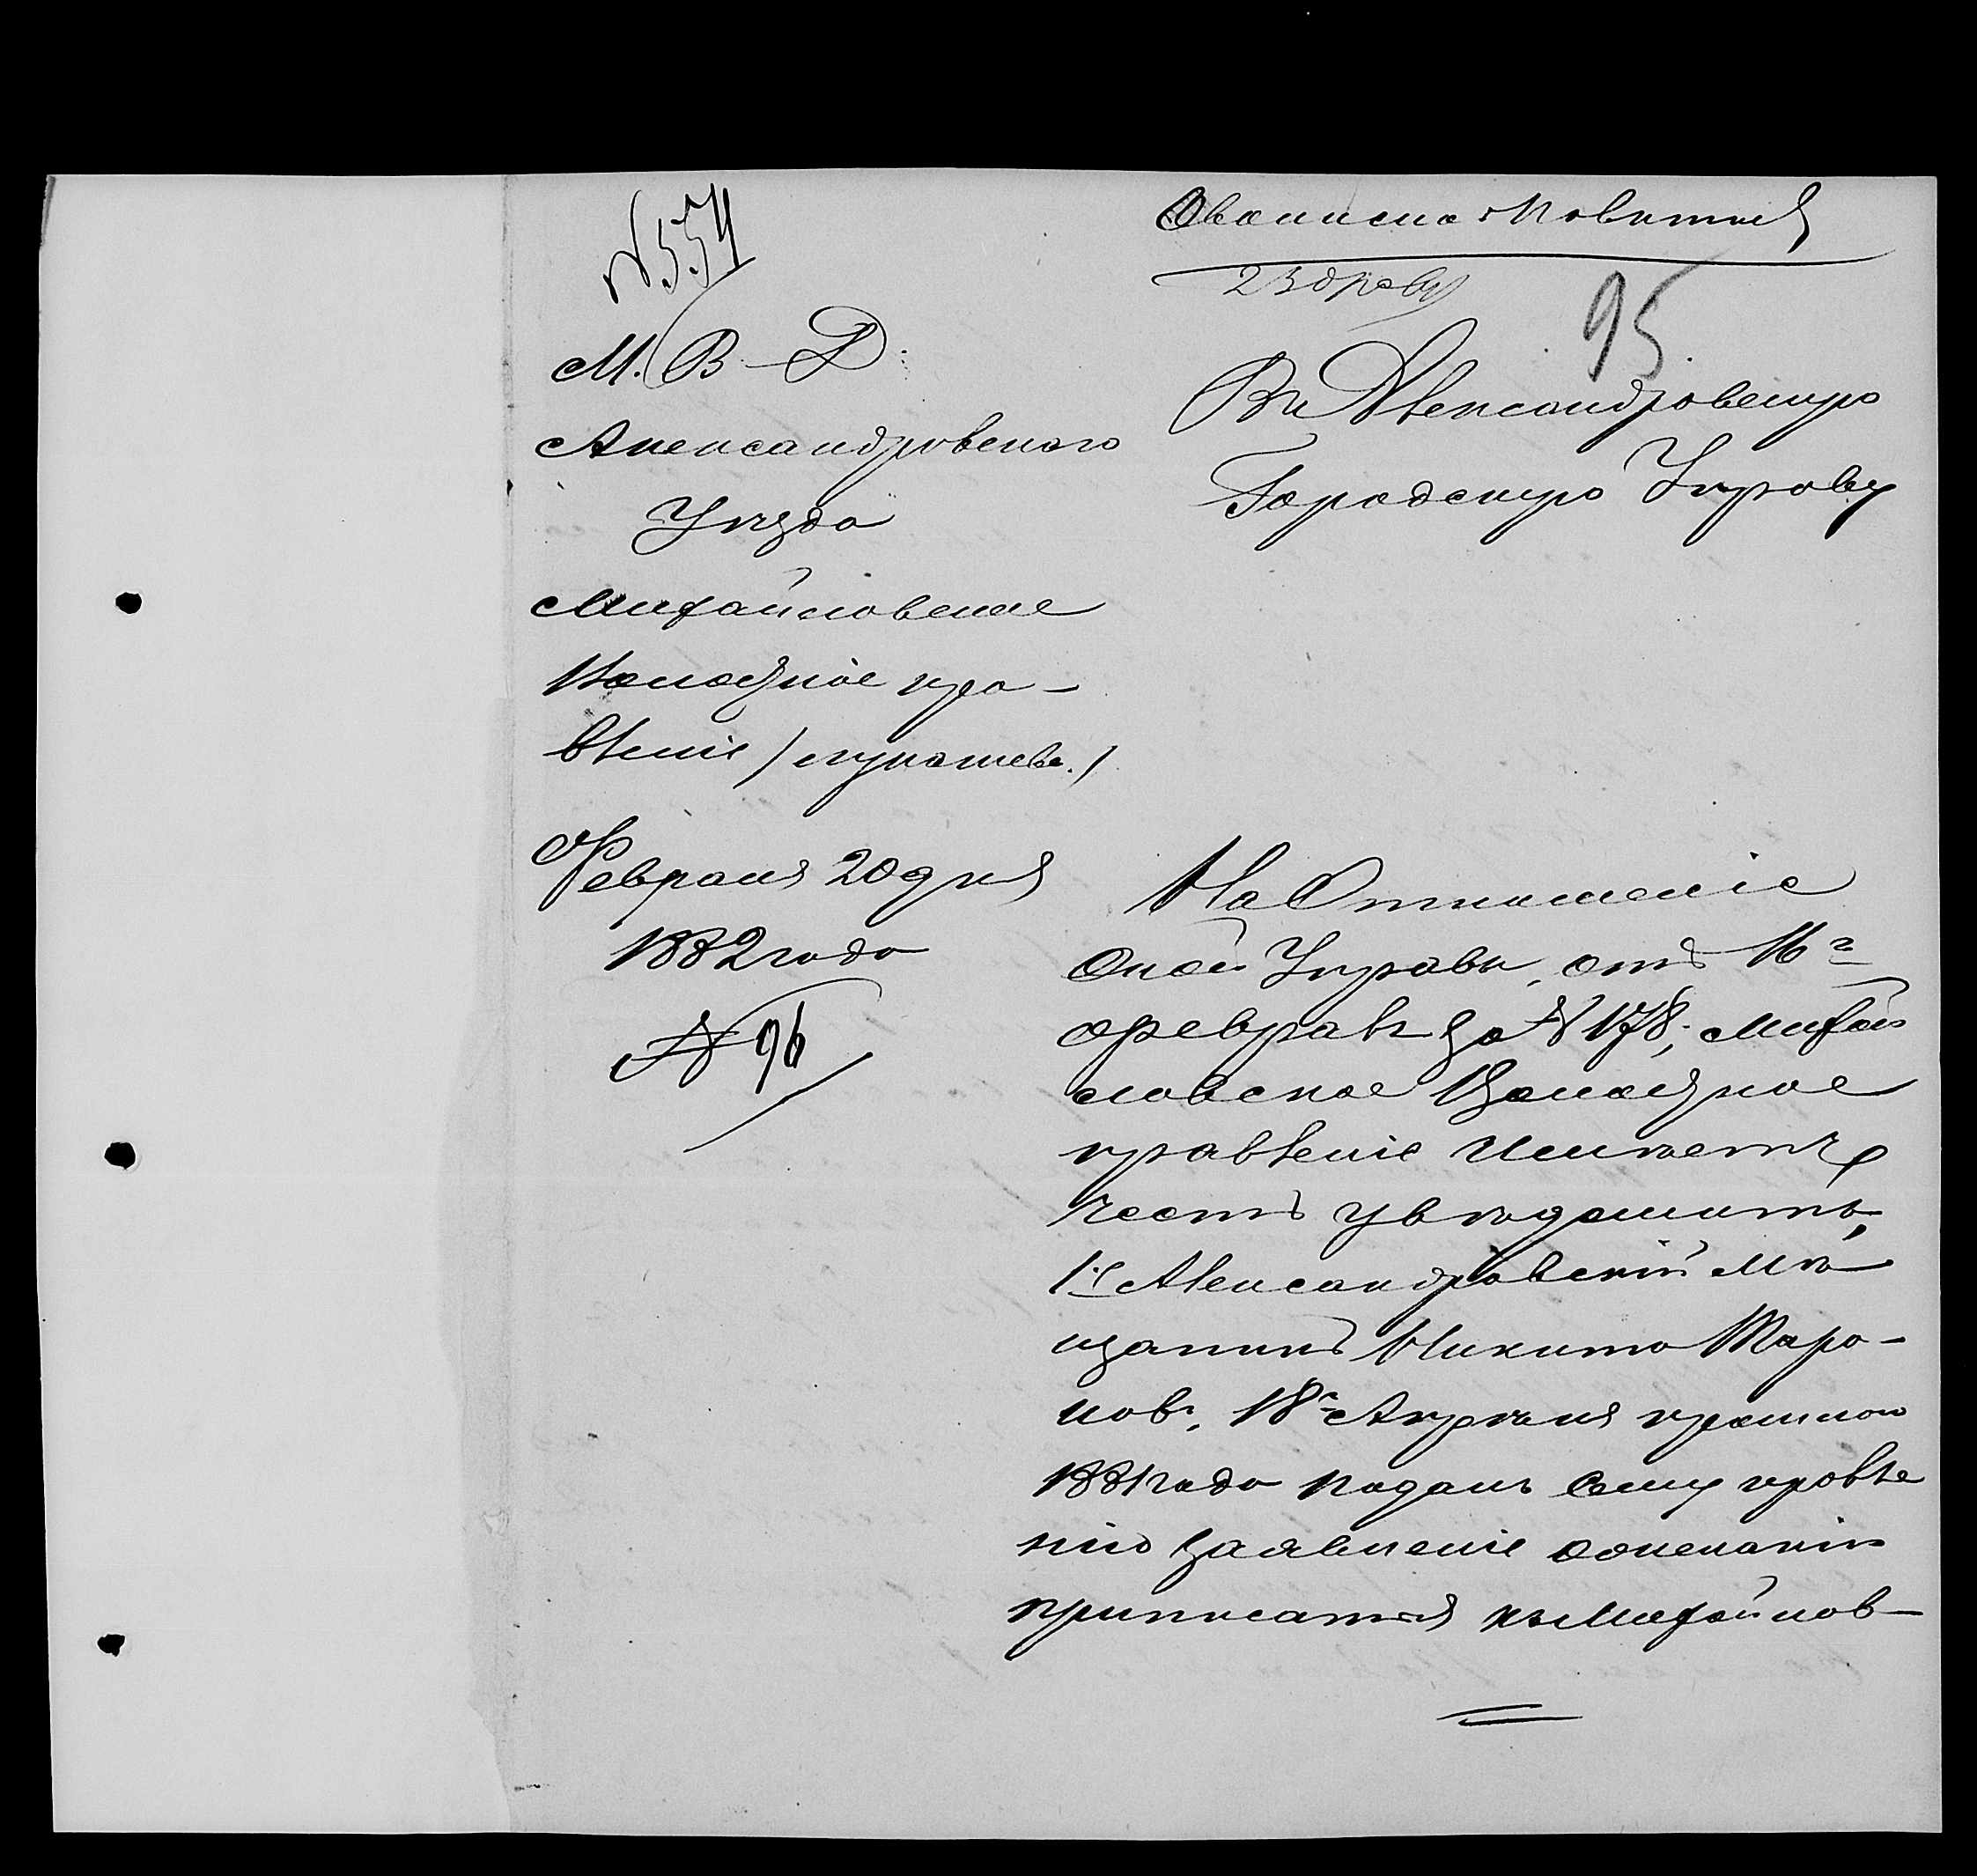 № 554
М. В. Д.
Александровскаго
Уѣзда
Михайловское
Волостное пра-
вленіе
Февраля 20 дня
1882 года
№ 96
23 февр
95
Въ Александровскую
Городскую Управу
На Отношеніе
Оной Управы, отъ 16го
февраля за № 178, Михай
ловское Волостное
правленіе Имѣетъ
честь увѣдомить,
1е Александровскій Мѣ
щанинъ Никита Тара-
новъ, 18го Апрѣля прошлого
1881 года подалъ Сему правле
нію заявленіе о желаніи
приписатся къ Михайлов-